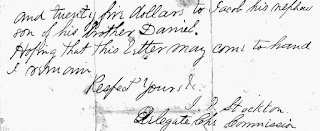 and twenty five dollars to Jacob his nephew
son of his Brother Daniel.
Hoping that this letter may come to hand
I remain
Respect Yours &c
J. Stockton
Delegate Chr Commission